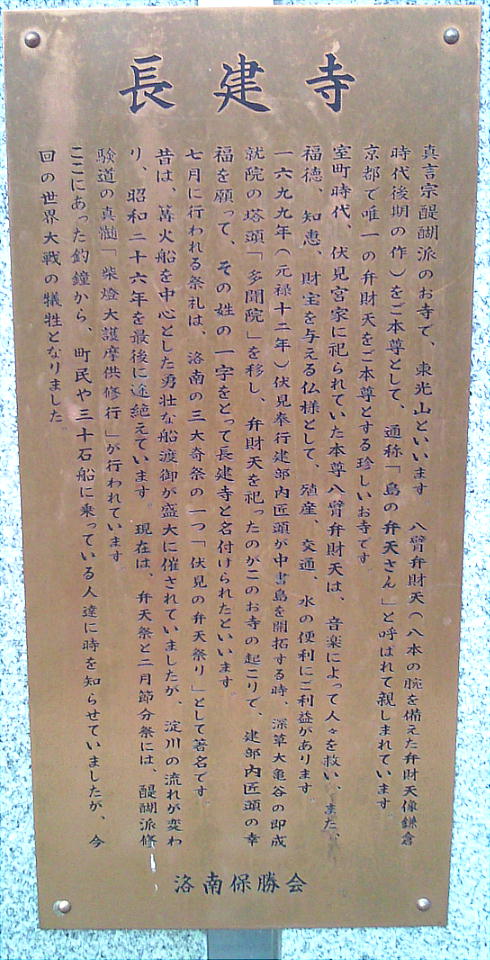 長建寺
真言宗醍醐派のお寺で、東光山といいます 八臂弁財天(八本の腕を備えた弁財天像鎌倉
時代後期の作)をご本尊として、通称「島の弁天さん」と呼ばれて親しまれています。
京都で唯一の弁財天をご本尊とする珍しいお寺です
室町時代、伏見宮家に祀られていた本尊八臂弁財天は、音楽によって人々を救い、また、
福徳、知恵、財宝を与える仏様として、殖産、交通、水の便利にご利益があります
一六九九年(元禄十二年)伏見奉行建部内匠頭が中書島を開拓する時、深草大亀谷の即成
就院の塔頭「多聞院」を移し、弁財天を祀ったのがこのお寺の起こりで、建部内匠頭の幸
福を願って、その姓の一字をとって長建寺と名付けられたといいます
七月に行われる祭礼は、洛南の三大奇祭の一つ「伏見の弁天祭り」として著名です
昔は、篝火船を中心とした勇壮な船渡御が盛大に催されていましたが、淀川の流れが変わ
り、昭和二十六年を最後に途絶えています。現在は、弁天祭と二月節分祭には、醍醐派修
験道の真髄「柴燈大護摩供修行」が行われています
ここにあった釣鐘から、町民や三十石船に乗っている人達に時を知らせていましたが、今
回の世界大戦の犠牲となりました。
洛南保勝会